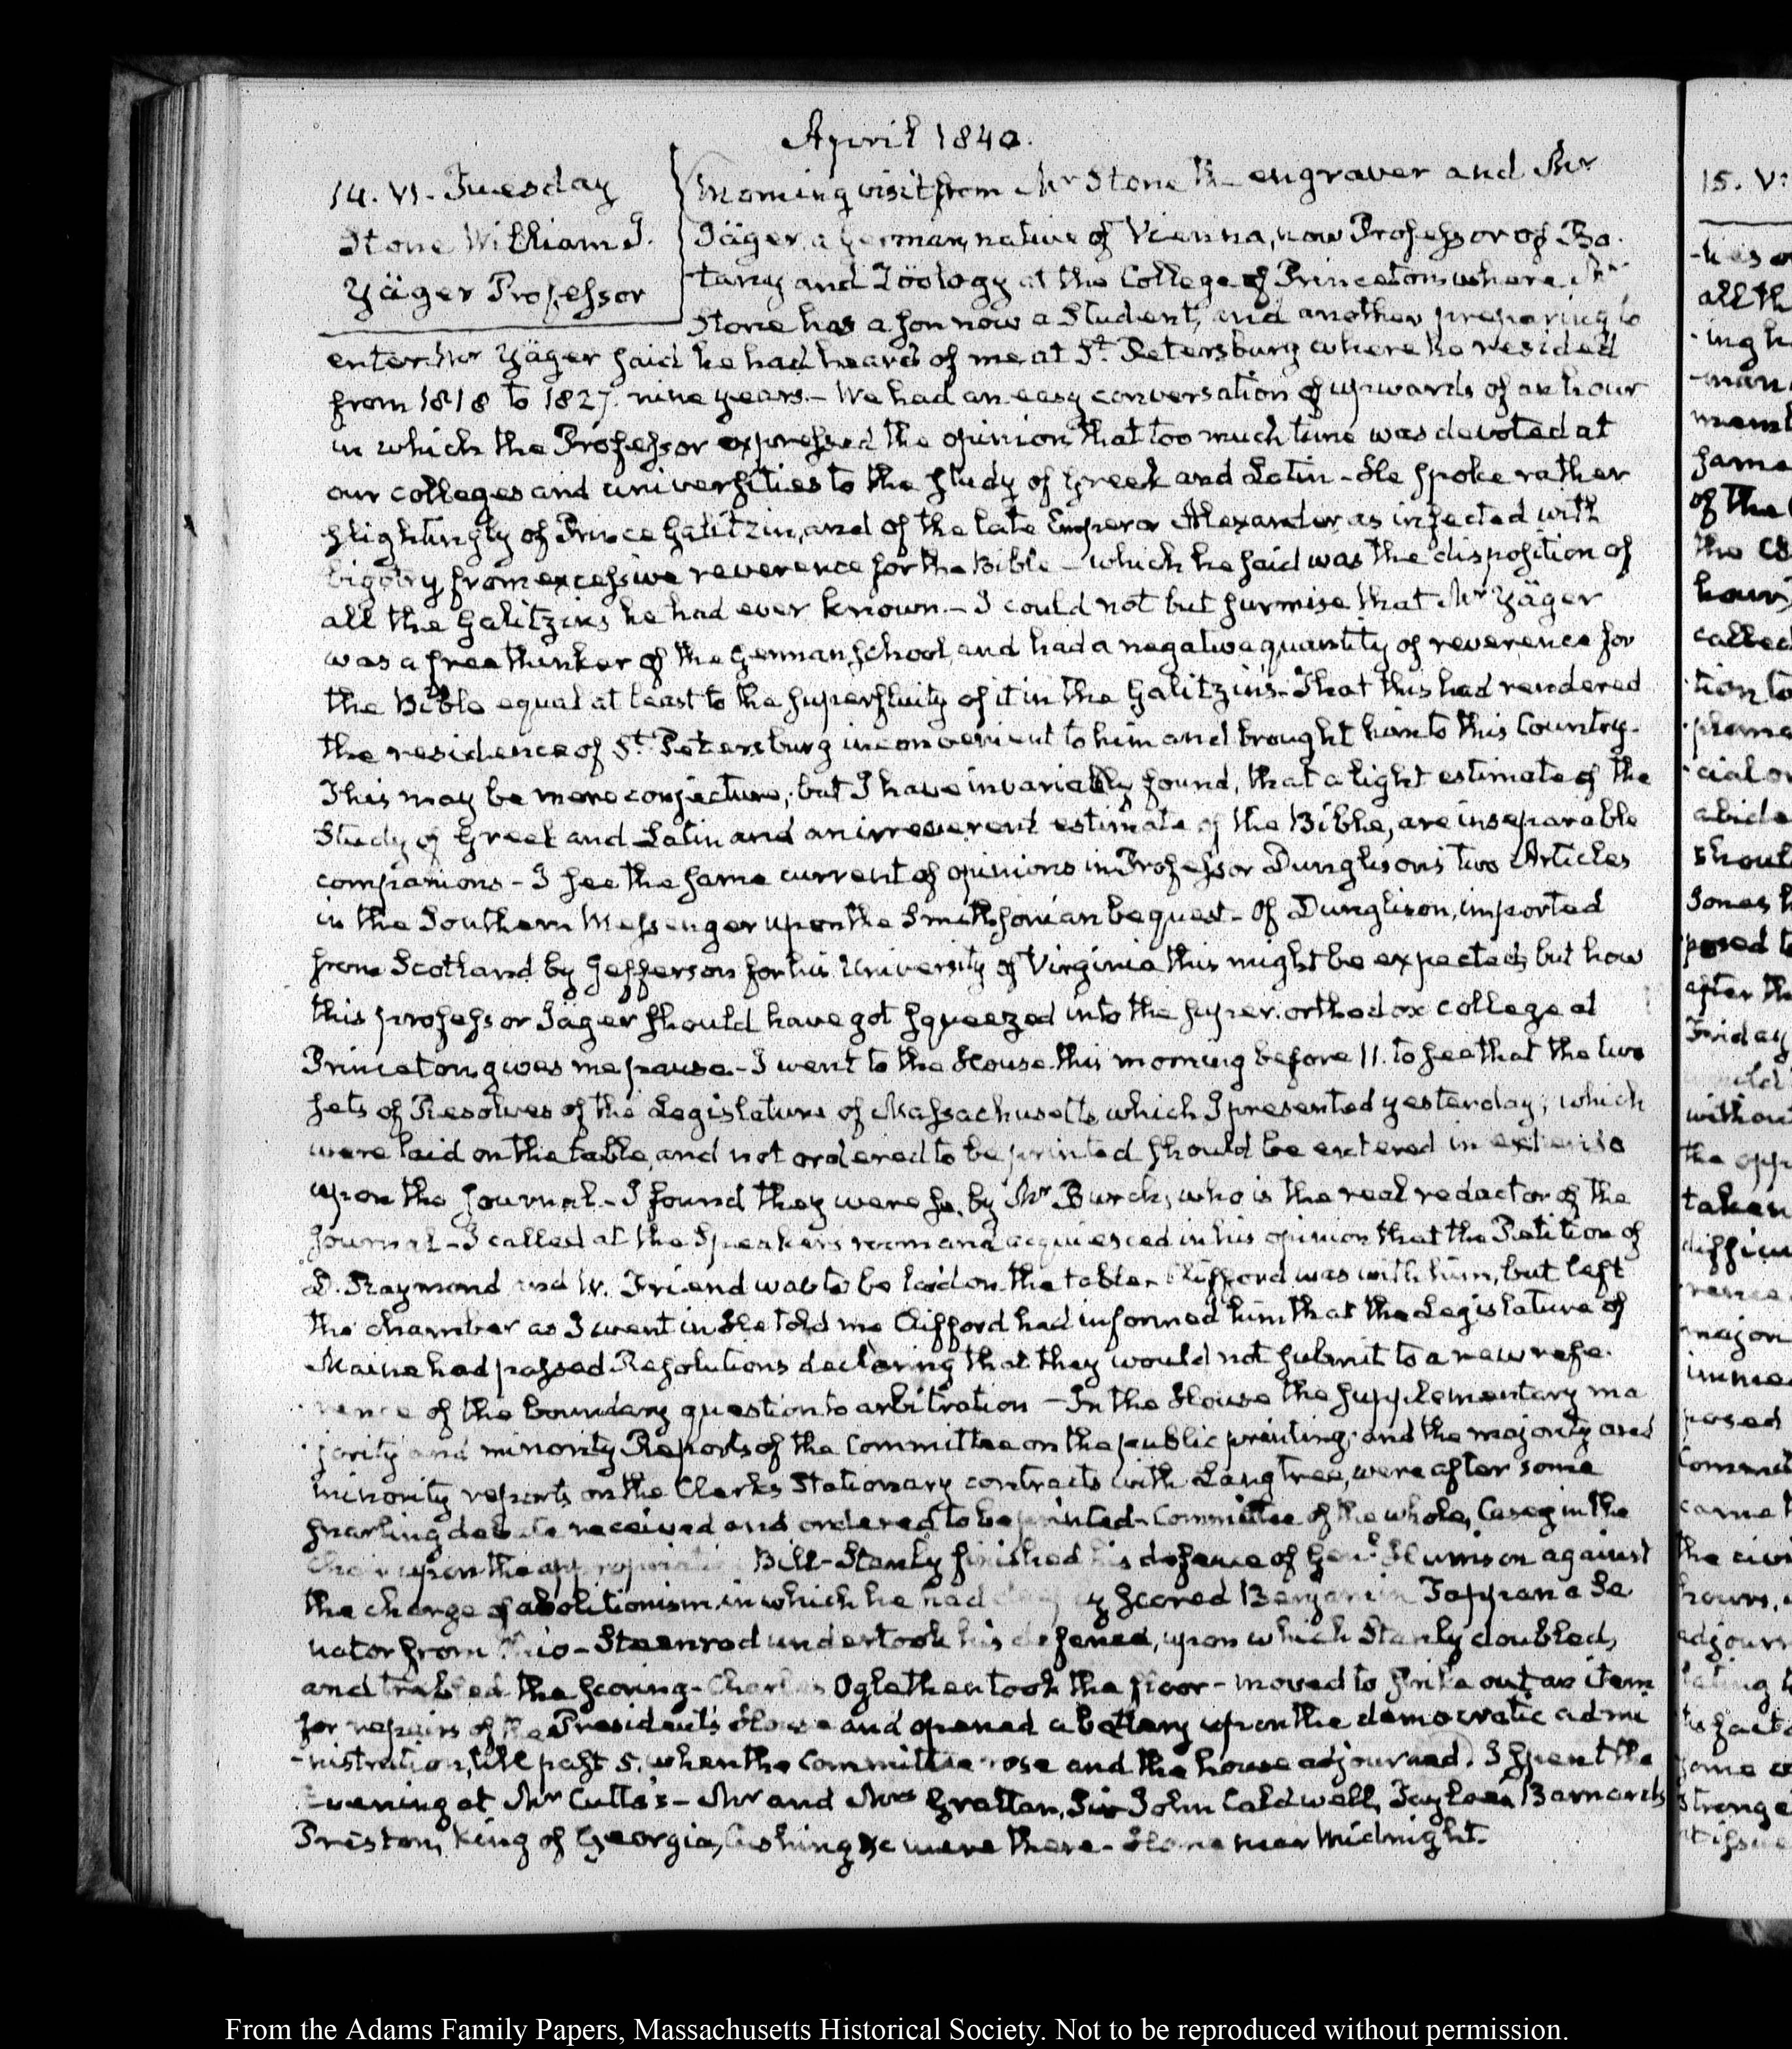 April 1840.
14. VI. Tuesday
Stone William J.
Yäger Professor
Morning visit from Mr Stone the engraver and Mr
Jäger, a German, native of Vienna, now Professor of Bo-
tany and Zöology at the College of Princeton where Mr
Stone has a son now a Student, and another preparing to
enter. Mr Yäger said he had heard of me at St. Petersburg where he resided
from 1818 to 1827. nine years.— We had an easy conversation of upwards of an hour
in which the Professor expressed the opinion that too much time was devoted at
our colleges and universities to the study of Greek and Latin - He spoke rather
slightingly of Prince Galitzin, and of the late Emperor Alexander as infected with
bigotry from excessive reverence for the Bible — which he said was the disposition of
all the Galitzins he had ever known.— I could not but surmise that Mr Yäger
was a free thinker of the German school, and had a negative quantity of reverence for
the Bible equal at least to the superfluity of it in the Galitzins- That this had rendered
the residence of St. Petersburg inconvenient to him and brought him to this Country.
This may be mere conjecture; but I have invariably found, that a light estimate of the
Study of Greek and Latin and an irreverent estimate of the Bible, are inseparable
companions - I see the same current of opinions in Professor Dunglison's two Articles
in the Southern Messenger upon the Smithsonian bequest- Of Dunglison, imported
from Scotland by Jefferson for his University of Virginia this might be expected; but how
this professor Jäger should have got squeezed into the super-orthodox college at
Princeton gives me pause - I went to the House this morning before 11. to see that the two
sets of Resolves of the Legislature of Massachusetts which I presented yesterday; which
were laid on the table, and not ordered to be printed should be entered in extenso
upon the Journal - I found they were so, by Mr Burch, who is the real redactor of the
Journal - I called at the Speakers room and acquiesced in his opinion that the Petition of
D. Raymond and W. Friend was to be laid on the table - Clifford was with him, but left
the chamber as I went in. He told me Clifford had informed him that the Legislature of
Maine had passed Resolutions declaring that they would not submit to a new refe-
rence of the boundary question to arbitration — In the House the supplementary ma
jority and minority Reports of the Committee on the public printing; and the majority and
minority reports on the Clerks Stationary contracts with Langtree, were after some
snarling debate received and ordered to be printed - Committee of the whole, Casey in the
Chair upon the appropriation Bill - Stanly finished his defence of Genl. Harrison against
the charge of abolitionism, in which he had deeply scored Benjamin Tappan a Se
nator from Ohio - Steenrod undertook his defence, upon which Stanly doubled,
and trebled the scoring - Charles Ogle then took the floor - moved to strike out an item
for repairs of the President's House and opened a battery upon the democratic admi
-nistration, till past 5. when the Committee rose and the house adjourned. I spent the
Evening at Mr Cutts's - Mr and Mrs Grattan, Sir John Caldwell, Tayloe, Barnard,
Preston, King of Georgia, Cushing &c were there - Home near Midnight.
15. V
all th
ing h
-man
same
of the
hours
called
tion to
cial o
abide
Shoul
Jones h
posed t
after th
Friday
withou
the opp
taken
major
posed
Commit
came
the civi
hours,
adjour
some
From the Adams Family Papers, Massachusetts Historical Society. Not to be reproduced without permission.